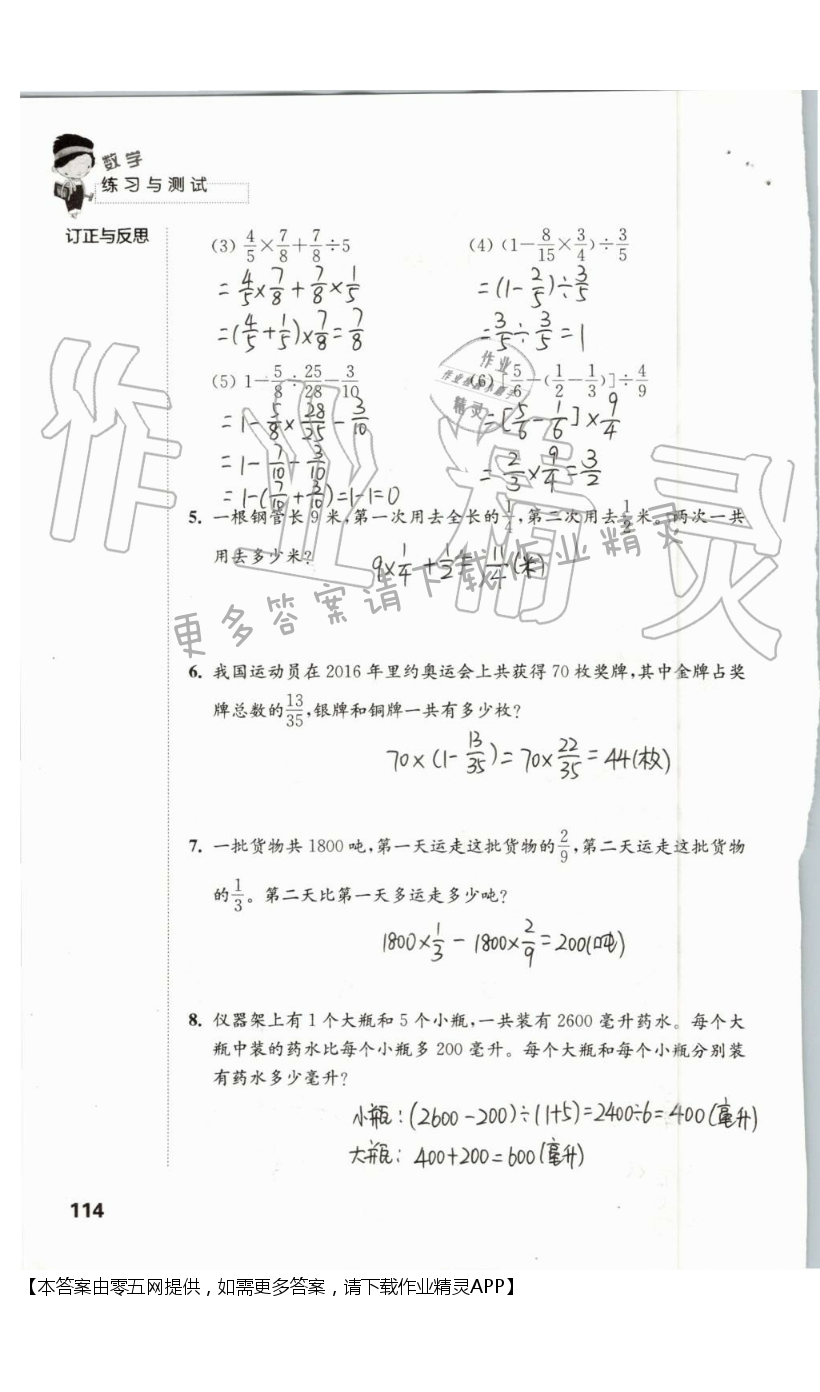 数学
练习与测试
订正与反思
(3) 4/5×7/8+7/8÷5
=4/5×7/8+7/8×1/5
=(4/5+1/5)×7/8=7/8
(4) (1-8/15×3/4)÷3/5
=(1-2/5)÷3/5
=3/5÷3/5=1
(5) 1-5/8÷25/28-3/10
=1-5/8×28/25-3/10
=1-7/10-3/10
=1-(7/10+3/10)=1-1=0
(6) [5/6-(1/2-1/3)]÷4/9
=[5/6-1/6]×9/4
=2/3×9/4=3/2
5. 一根钢管长9米,第一次用去全长的1/4,第二次用去1/2米。两次一共
用去多少米?
9×1/4+1/2=11/4(米)
6. 我国运动员在2016年里约奥运会上共获得70枚奖牌,其中金牌占奖
牌总数的13/35,银牌和铜牌一共有多少枚?
70×(1-13/35)=70×22/35=44(枚)
7. 一批货物共1800吨,第一天运走这批货物的2/9,第二天运走这批货物
的1/3。第二天比第一天多运走多少吨?
1800×1/3-1800×2/9=200(吨)
8. 仪器架上有1个大瓶和5个小瓶,一共装有2600毫升药水。每个大
瓶中装的药水比每个小瓶多200毫升。每个大瓶和每个小瓶分别装
有药水多少毫升?
小瓶:(2600-200)÷(1+5)=2400÷6=400(毫升)
大瓶:400+200=600(毫升)
114
作业精灵
更多答案请下载作业精灵
作业
精灵
【本答案由零五网提供，如需更多答案，请下载作业精灵APP】